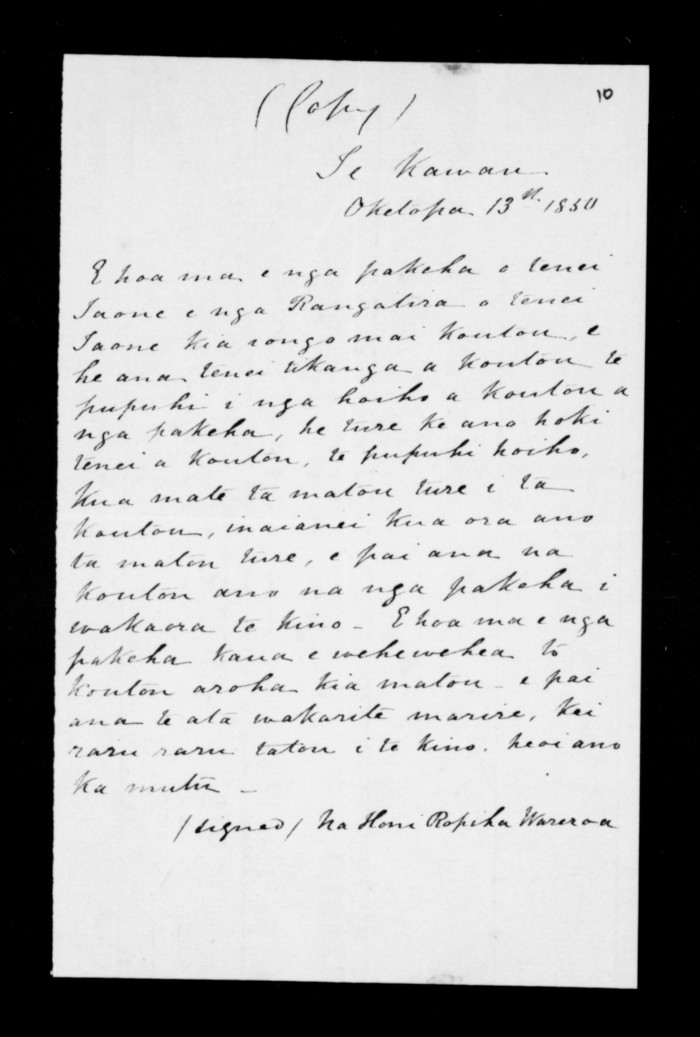 10
(Copy)
Te Kawau
Oketopa 13th. 1850
E hoa ma e nga pakeha o tenei
Taone e nga Rangatira o tenei
Taone kia rongo mai koutou, e
he ana tenei tikanga a koutou te
pupuhi i nga hoiho a koutou a
nga pakeha, he ture ke ano hoki
tenei a koutou, te pupuhi hoiho,
Kua mate ta matou ture i ta
koutou, inaianei kua ora ano
ta matou ture, e pai ana na
koutou ano na nga pakeha i
wakaora te kino - E hoa ma e nga
pakeha kaua e wehewehea to
koutou aroha kia matou - e pai
ana te ata wakarite marire, kei
raru raru tatou i te kino. heoi ano
ka mutu -
(signed) Na Honi Ropiha Wareroa